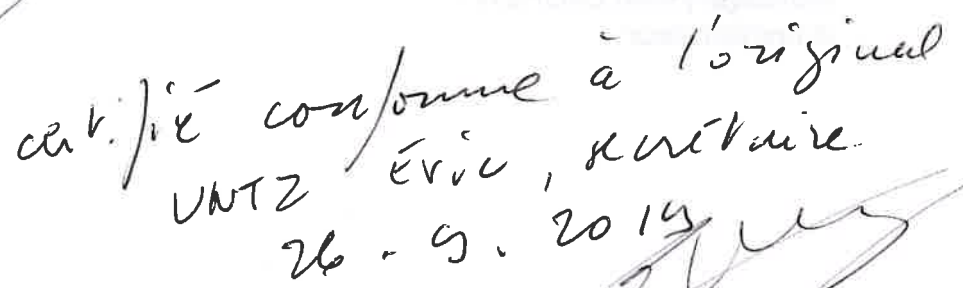 certifié conforme à l'original
UNTZ Éric, secrétaire
26.9.2019